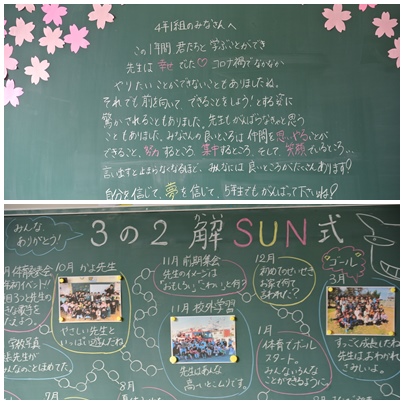 4年1組のみなさんへ
この1年間 君たちと学ぶことができ
先生は幸せでした♡ コロナ禍でなかなか
やりたいことができないこともありましたね。
それでも前を向いて、できることをしよう！とする姿に
驚かされることもありました。先生もがんばらなきゃと思う
こともありました。みなさんの良いところは仲間を思いやることが
できること、努力するところ、集中するところ、そして笑顔でいるところ…
言い出すと止まらなくなるほど、みんなには良いところがたくさんあります！
自分を信じて、夢を信じて、5年生でもがんばって下さいね！
みんな、
ありがとう！
3の2 解SUN式
10月 かよ先生
やさしい先生と
いっぱい遊んだね
11月 前期集会
先生のイメージは
「おもしろい」「こわい」と何？
11月 校外学習
先生はあんな
高〜いとこムリです。
12月
初めてのせいせき
お家で何て
言われた？
1月
体育でボール
スタート。
みんないろんな
ことができるように。
ゴール
3月
すっごく成長したね
先生はおわかれ
さみしいよ。
9月
8月